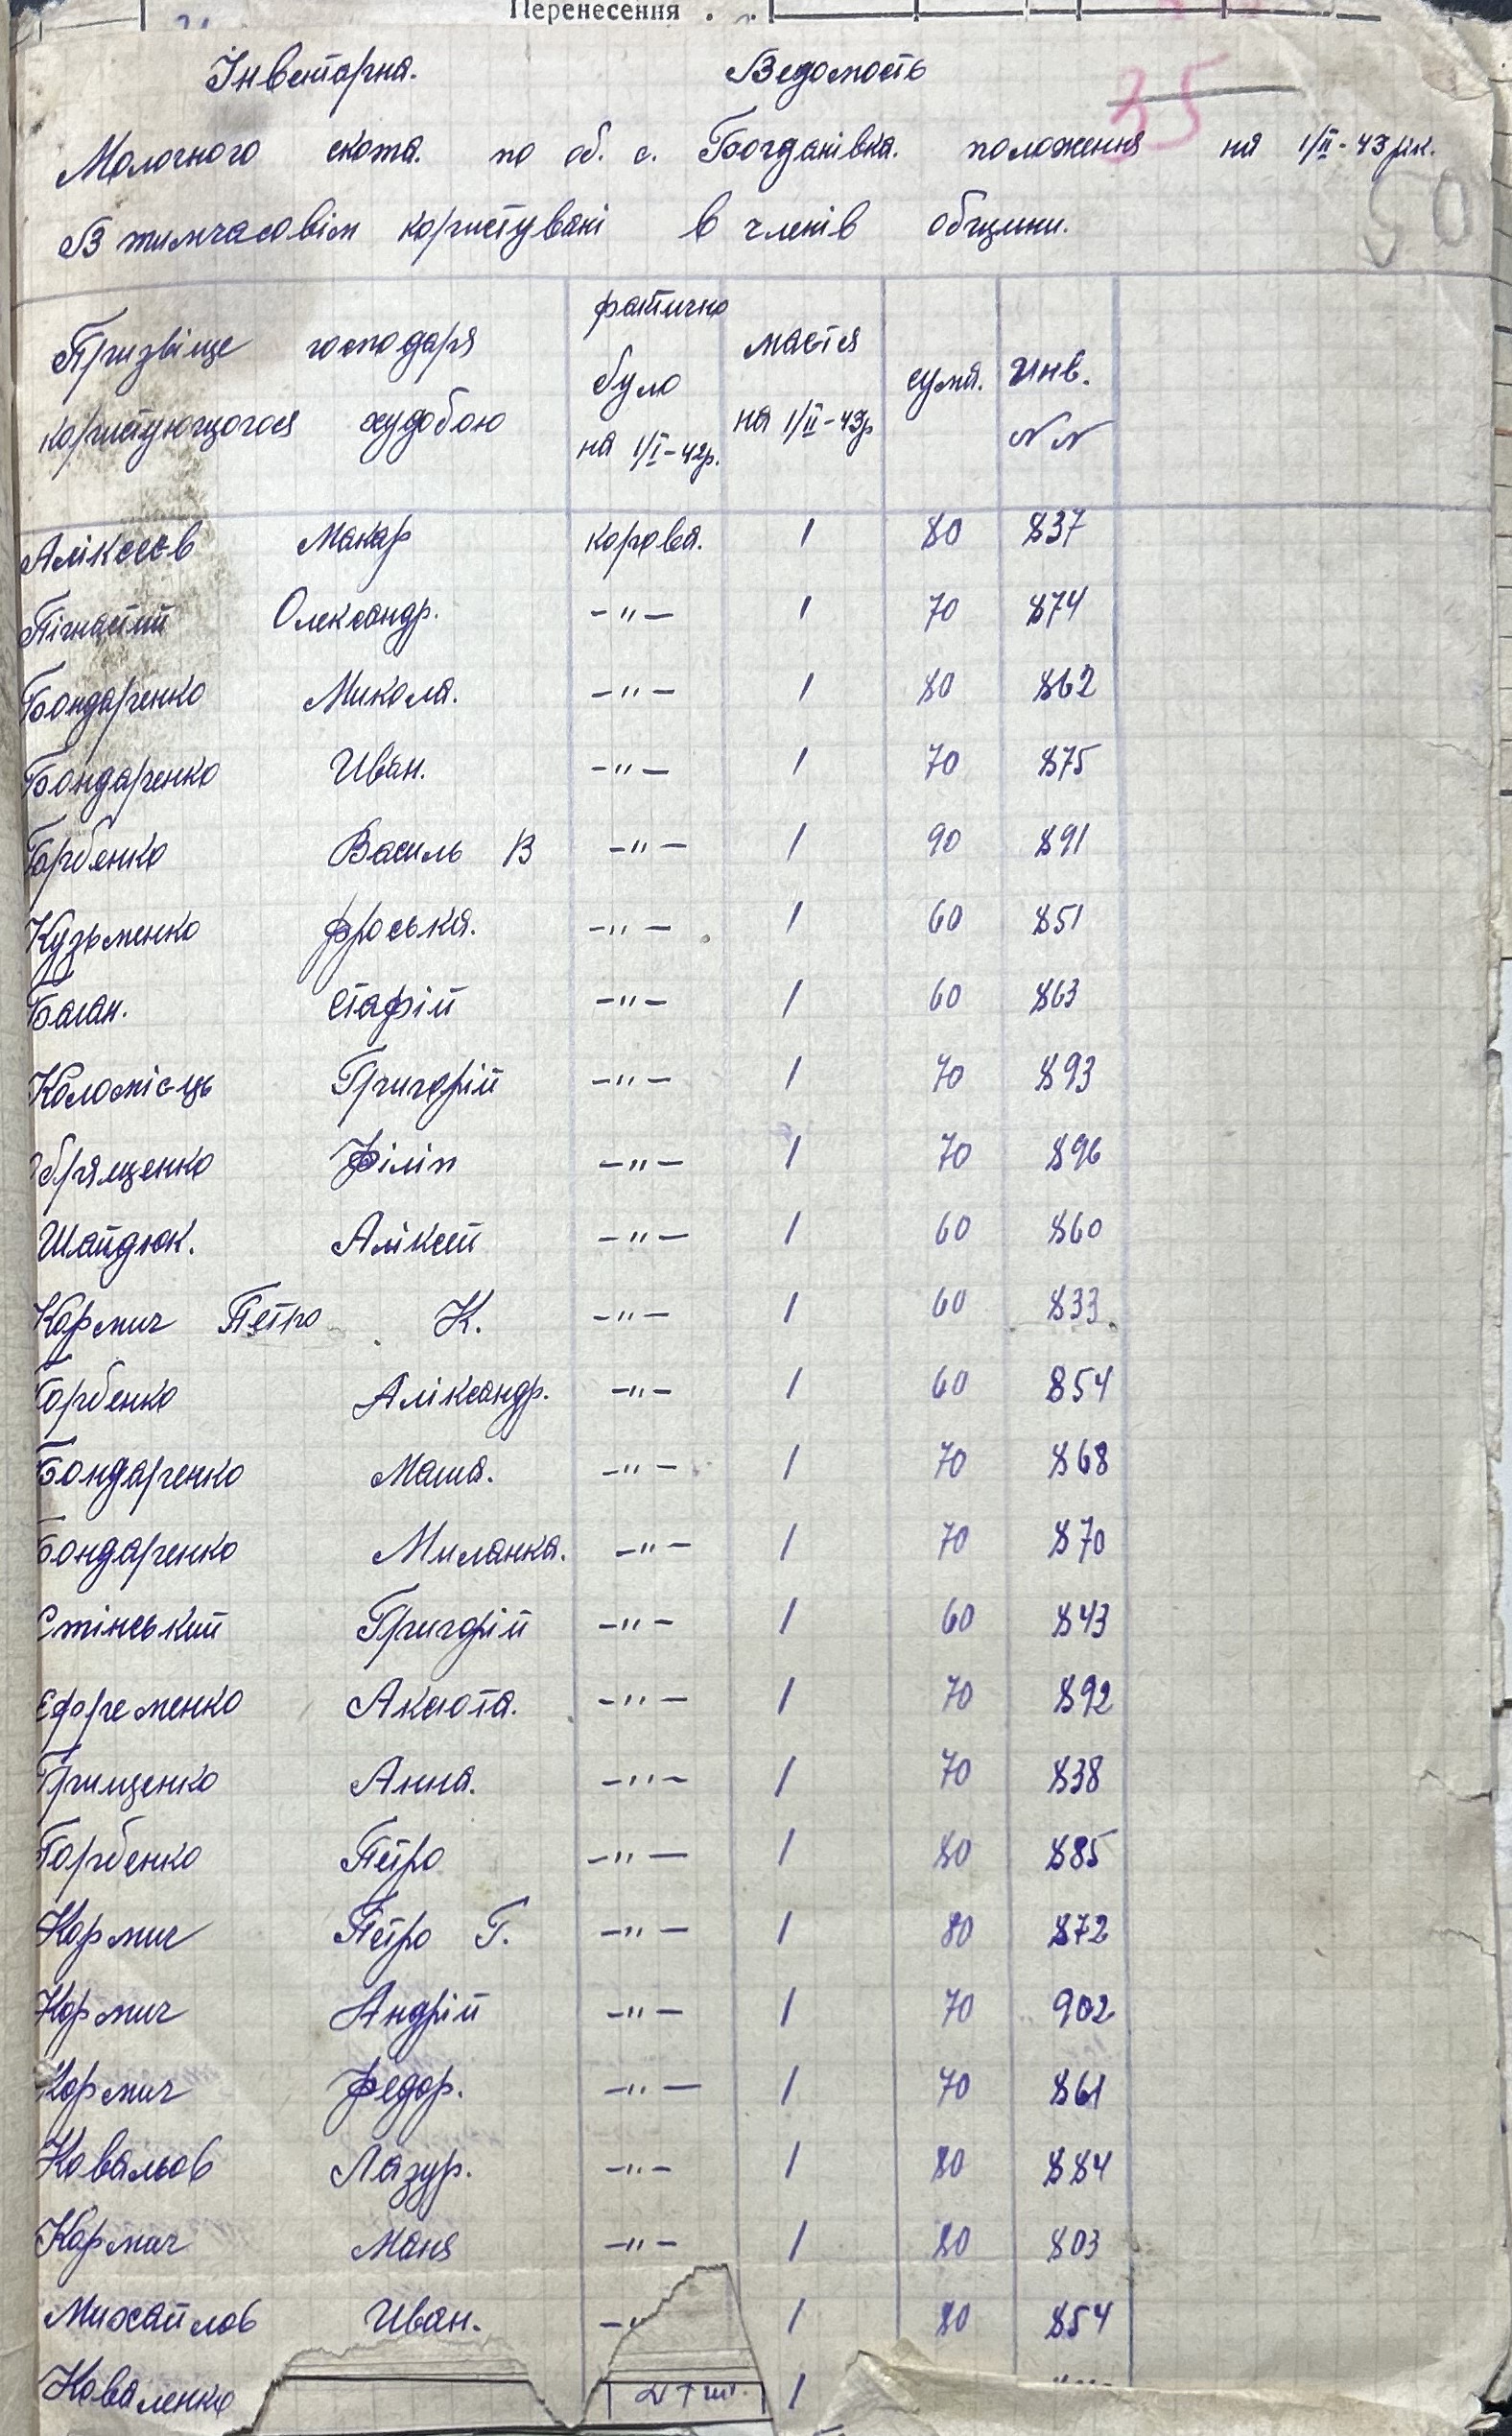 Перенесення
Інвентарна. Ведомость
35
Молочного скота. по об. с. Богданівка. положення на 1/II-43 рік.
50
В тимчасовім користувані в членів общини.
Призвіще господаря користующогося худобою | фатично було на 1/I-42р. | маєтся на 1/II-43р | сума. | Инв. NN
Аліксєєв Макар корова. 1 80 837
Олександр. -"- 1 70 874
Бондаренко Микола. -"- 1 80 862
Бондаренко Иван. -"- 1 70 875
Горбенко Василь В -"- 1 90 891
Кузьменко Фроська. -"- 1 60 851
Баган. Стафій -"- 1 60 863
Коломієць Григорій -"- 1 70 893
Філіп -"- 1 70 896
Шайдюк. Аліксій -"- 1 60 860
Кормич Петро К. -"- 1 60 833
Горбенко Аліксандр. -"- 1 60 854
Бондаренко Маша. -"- 1 70 868
Бондаренко Миланка. -"- 1 70 870
Смінський Григорій -"- 1 60 843
Ефременко Аксюта. -"- 1 70 892
Грищенко Анна. -"- 1 70 838
Горбенко Петро -"- 1 80 885
Кормич Петро Г. -"- 1 80 872
Кормич Андрій -"- 1 70 902
Кормич Федор. -"- 1 70 861
Ковальов Лазур. -"- 1 80 884
Кормич Маня -"- 1 80 803
Михайлов Иван. -" 1 80 854
Коваленко 1